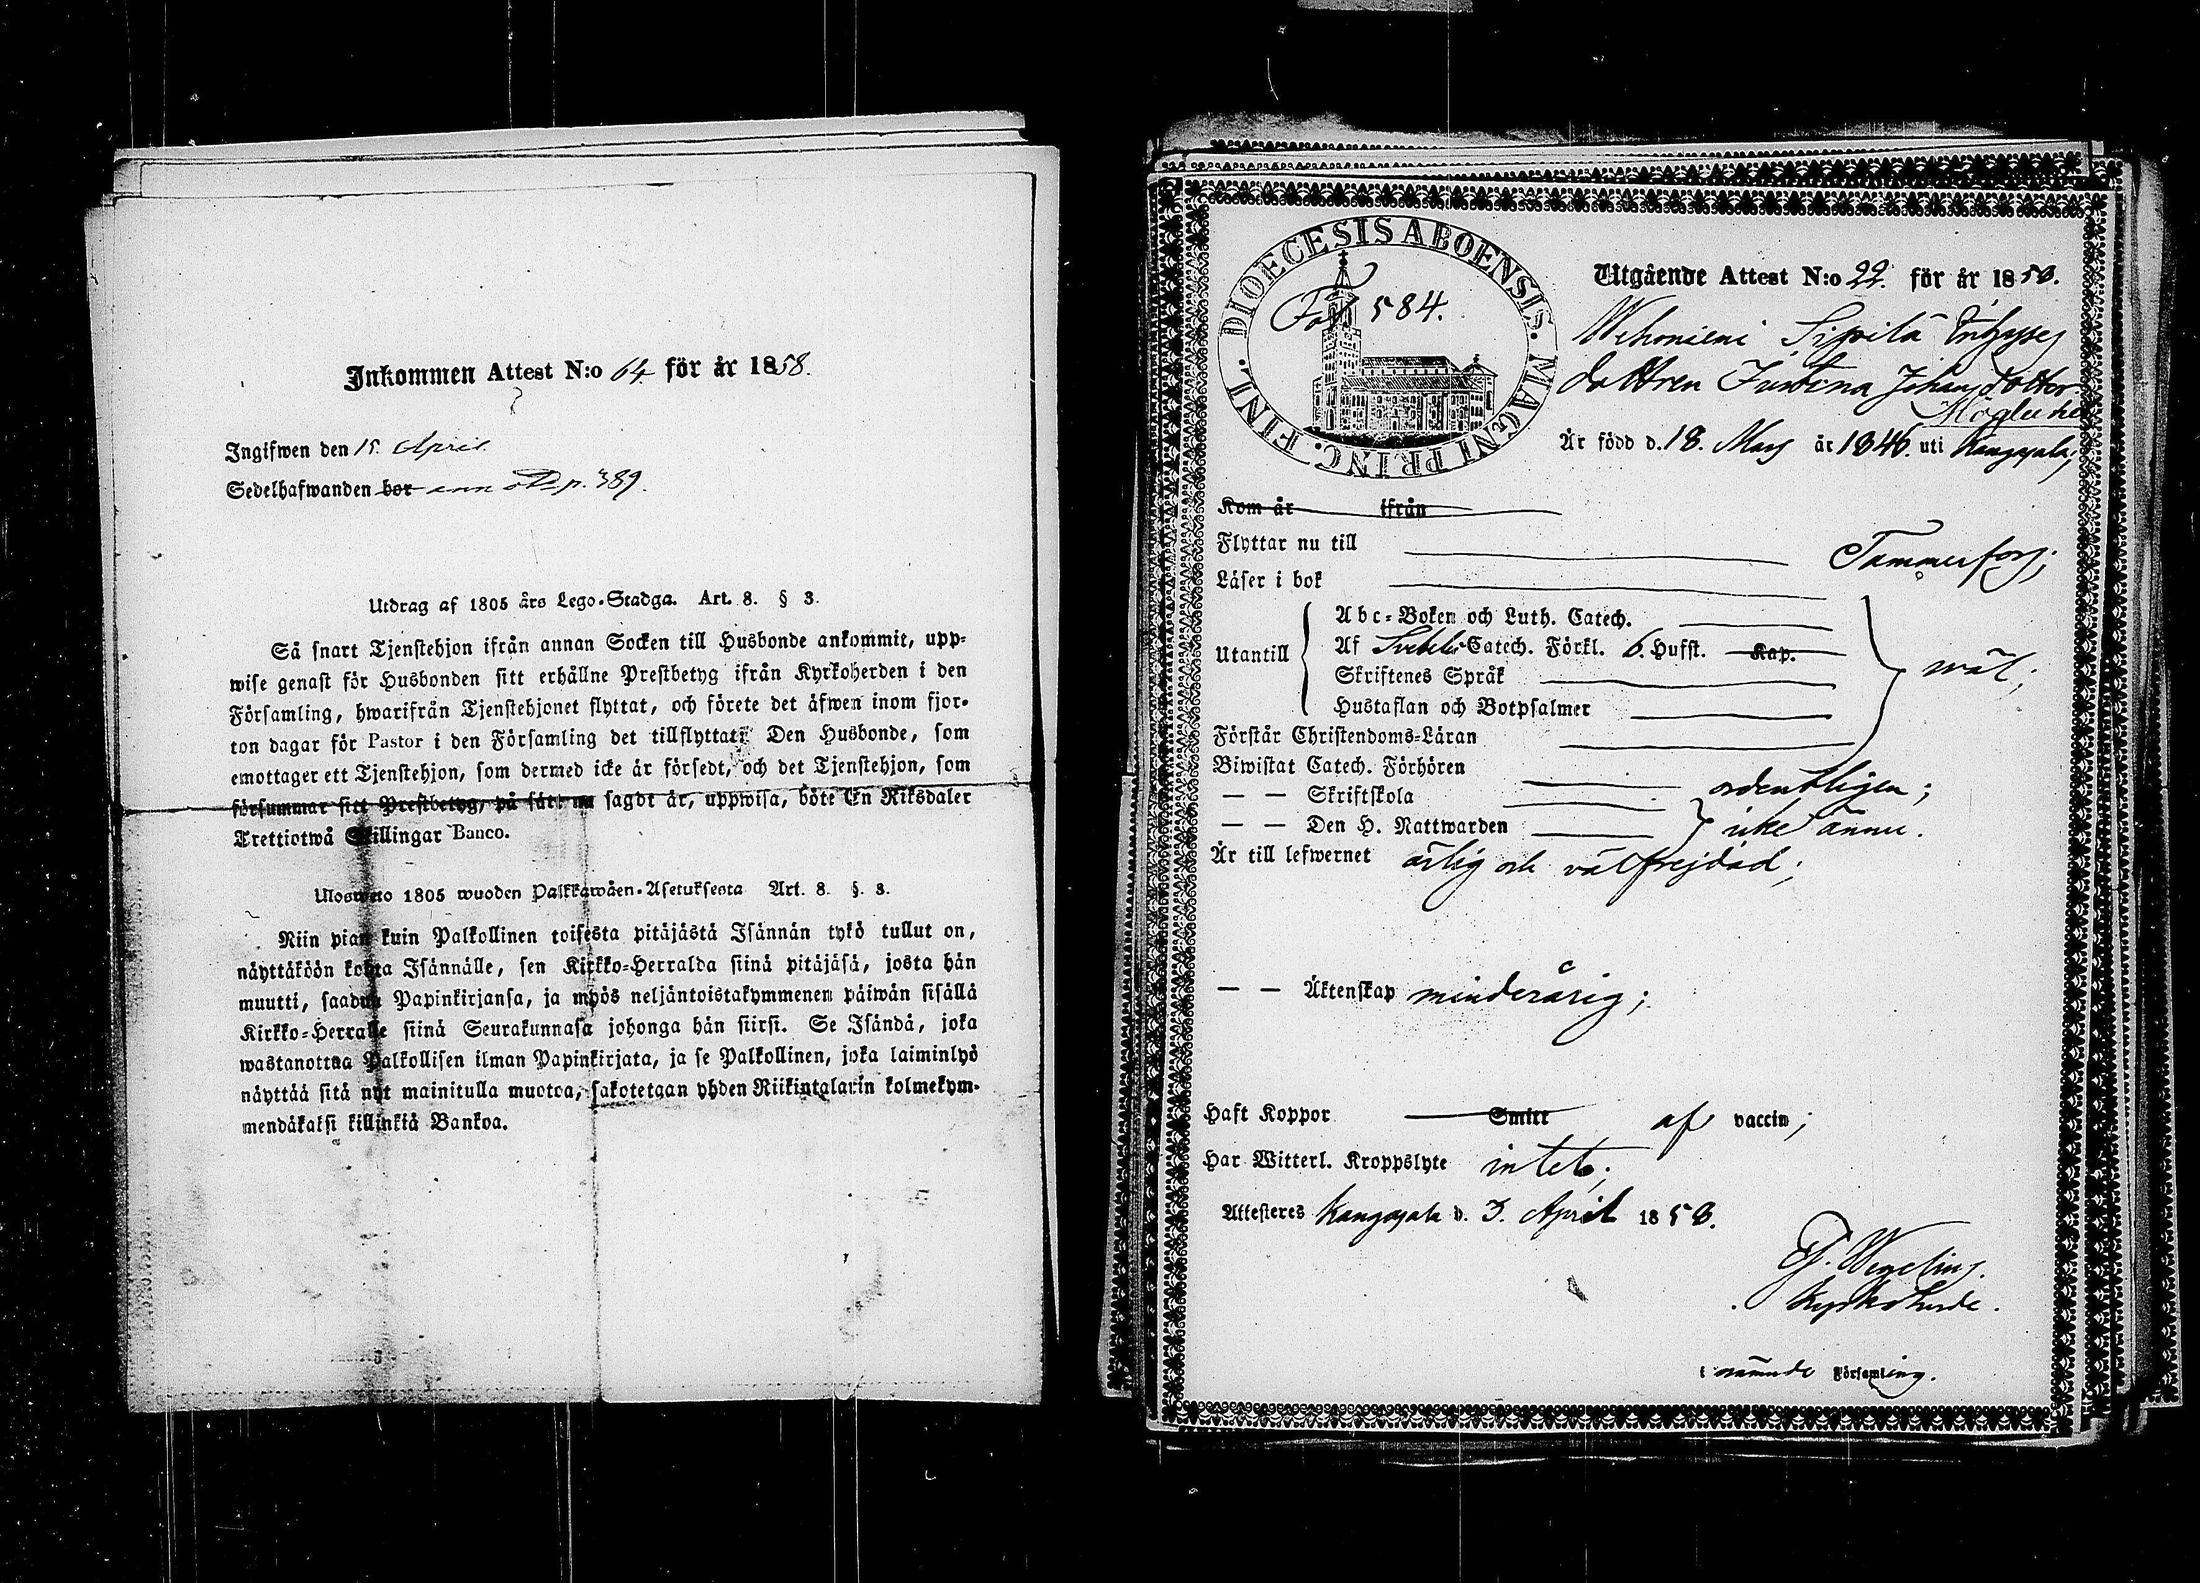 Inkommen Attest N:o 64. för år 1858.
Ingifwen den 15. April.
Sedelhafwanden bor ann p. 389.
Utdrag af 1805 års Lego-Stadga. Art. 8. § 3.
Så snart Tjenstehjon ifrån annan Socken till Husbonde ankommit, upp-
wise genast för Husbonden sitt erhållne Prestbetyg ifrån Kyrkoherden i den
Församling, hwarifrån Tjenstehjonet flyttat, och förete det äfwen inom fjor-
ton dagar för Pastor i den Församling det tillflyttat. Den Husbonde, som
emottager ett Tjenstehjon, som dermed icke är försedt, och det Tjenstehjon, som
försummar sitt Prestbetyg, på sätt nu sagdt är, uppwisa, böte En Riksdaler
Trettiotwå Skillingar Banco.
Ulosweto 1805 wuoden Palkkawäen-Asetuksesta Art. 8. §. 3.
Niin pian kuin Palkollinen toisesta pitäjästä Isännän tykö tullut on,
näyttäköön kohta Isännälle, sen Kirkko-Herralda siinä pitäjäsä, josta hän
muutti, saadun Papinkirjansa, ja myös neljäntoistakymmenen päiwän sisällä
Kirkko-Herralle siinä Seurakunnasa johonga hän siirsi. Se Isändä, joka
wastanottaa Palkollisen ilman Papinkirjata, ja se Palkollinen, joka laiminlyö
näyttää sitä nyt mainitulla muotoa, sakotetaan yhden Riikintalarin kolmekym-
mendäkaksi killinkiä Bankoa.
DIOECESIS ABOENSIS. MAGNI PRINC. FINL.
Fol 584.
Utgående Attest N:o 22. för år 1858.
Wehoniemi Sipilä Inhyses
dottren Justina Johansdotter
Är född d. 18. Mars år 1846. uti Kangasala;
Kom år ifrån
Flyttar nu till Tammerfors;
Läser i bok
Utantill
Abc-Boken och Luth. Catech.
Af Svebelii Catech. Förkl. 6. Hufst. Kap.
Skriftenes Språk
Hustaflan och Botpsalmer
wäl;
Förstår Christendoms-Läran
Biwistat Catech. Förhören ordentligen;
— — Skriftskola
— — Den H. Nattwarden icke ännu.
Är till lefwernet ärlig och välfrejdad;
— — Äktenskap minderårig;
Haft Koppor Smitt af vaccin;
Har Witterl. Kroppslyte intet;
Attesteres Kangasala d. 3. April 1858.
Wegelius.
Kyrkoherde.
i nämnde Församling.